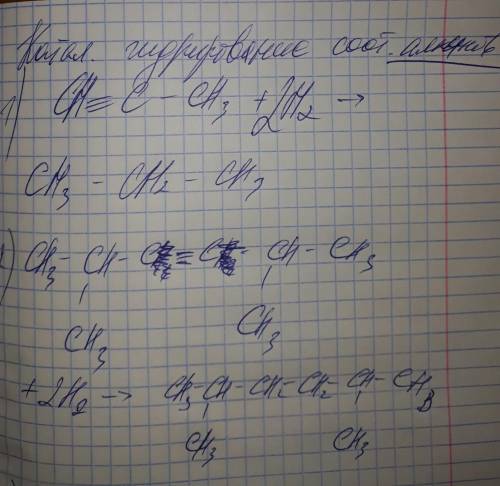 Катал. гидрирование соот. алкинов
1) CH≡C-CH3+2H2→
CH3-CH2-CH3
2) CH3-CH-C≡C-CH-CH3
CH3 CH3
+2H2→ CH3-CH-CH2-CH2-CH-CH3
CH3 CH3